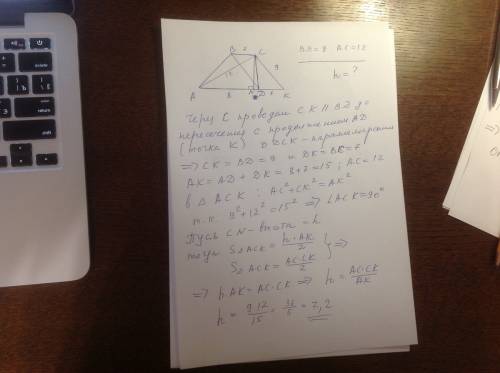 BD=9 AC=12
h=?
B 7 C
12 9
A 8 N D 7 K
Через C проводим CK || BD до
пересечения с продолжением AD
(точка K) DBCK - параллелограмм
=> CK = BD = 9 и DK = BC = 7
AK = AD + DK = 8+7 = 15 ; AC = 12
в △ ACK : AC² + CK² = AK²
т.к. 9² + 12² = 15² => ∠ACK = 90°
Пусть CN - высота = h
тогда S△ACK = h·AK/2 } =>
S△ACK = AC·CK/2
=> h·AK = AC·CK => h = AC·CK/AK
h = 9·12/15 = 36/5 = 7,2